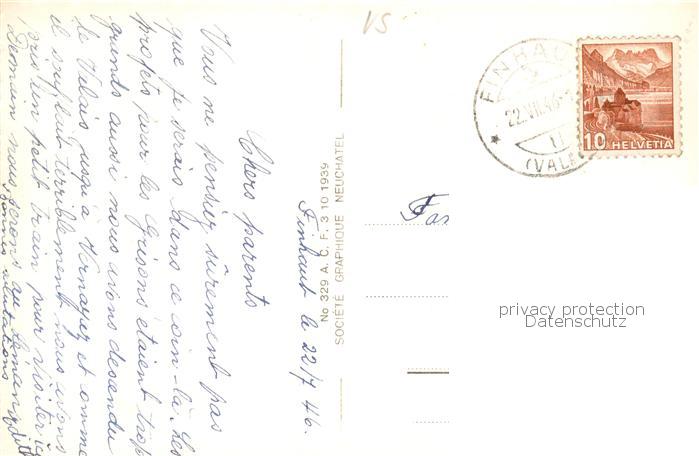 Finhaut le 22/7 46.
Chers parents
Vous ne pensiez sûrement pas
que je serais dans ce coin-là. Les
projets pour les Grisons étaient trop
grands aussi nous avons descendu
le Valais jusqu'à Vernayaz et comme
il soufflait terriblement nous avons
pris un petit train pour visiter
Demain nous serons au Léman
Bonnes salutations
No 329 A. C. F. 3 10 1939
SOCIÉTÉ GRAPHIQUE NEUCHATEL
VS
FINHAU
22.VII.46
(VALA
10 HELVETIA
Fa
privacy protection
Datenschutz